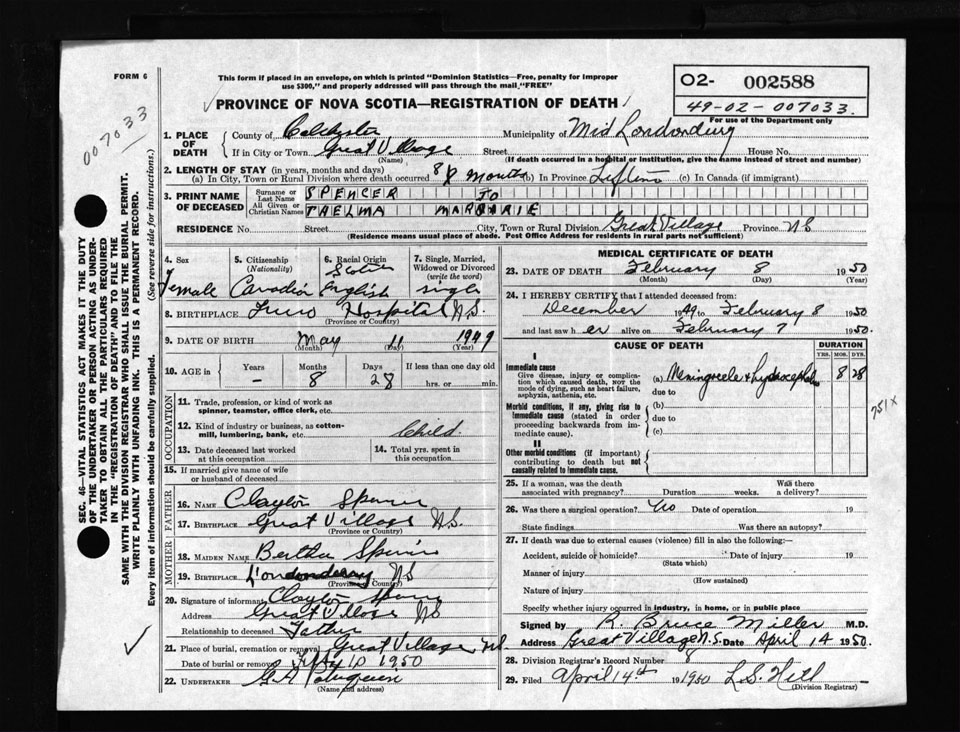 FORM 6
This form if placed in an envelope, on which is printed "Dominion Statistics—Free, penalty for improper
use $300," and properly addressed will pass through the mail "FREE"
O2- 002588
49-02-007033
For use of the Department only
007033
PROVINCE OF NOVA SCOTIA—REGISTRATION OF DEATH
1. PLACE OF DEATH
County of Colchester Municipality of Mid Londonderry
If in City or Town Great Village Street House No.
(Name) (If death occurred in a hospital or institution, give the name instead of street and number)
2. LENGTH OF STAY (in years, months and days)
(a) In City, Town or Rural Division where death occurred 8 months (b) In Province Lifetime (c) In Canada (if immigrant)
3. PRINT NAME OF DECEASED
Surname or Last Name SPENCER
All Given or Christian Names THELMA MARJORIE
RESIDENCE No. Street City, Town or Rural Division Great Village Province NS
(Residence means usual place of abode. Post Office Address for residents in rural parts not sufficient)
4. Sex Female
5. Citizenship (Nationality) Canadian
6. Racial Origin English
7. Single, Married, Widowed or Divorced (write the word) single
8. BIRTHPLACE Truro Hospital N.S.
(Province or Country)
9. DATE OF BIRTH May 11 1949
(Month) (Day) (Year)
10. AGE in Years – Months 8 Days 28 If less than one day old hrs. or min.
OCCUPATION
11. Trade, profession, or kind of work as spinner, teamster, office clerk, etc.
12. Kind of industry or business, as cotton-mill, lumbering, bank, etc. Child
13. Date deceased last worked at this occupation
14. Total yrs. spent in this occupation
15. If married give name of wife or husband of deceased
FATHER
16. NAME Clayton Spencer
17. BIRTHPLACE Great Village N.S.
(Province or Country)
MOTHER
18. MAIDEN NAME Bertha
19. BIRTHPLACE Londonderry NS
(Province or Country)
20. Signature of informant Clayton Spencer
Address Great Village NS
Relationship to deceased Father
21. Place of burial, cremation or removal Great Village NS.
Date of burial or removal 10 1950
22. UNDERTAKER G.A
(Name and address)
MEDICAL CERTIFICATE OF DEATH
23. DATE OF DEATH February 8 1950
(Month) (Day) (Year)
24. I HEREBY CERTIFY that I attended deceased from:
December 1949 to February 8 1950.
and last saw her alive on February 7 1950.
CAUSE OF DEATH
DURATION
YRS. MOS. DYS.
I
Immediate cause
Give disease, injury or complication which caused death, NOT the mode of dying, such as heart failure, asphyxia, asthenia, etc.
(a) Meningocele & hydrocephalus 8 28
due to
Morbid conditions, if any, giving rise to immediate cause (stated in order proceeding backwards from immediate cause).
(b)
due to
(c)
751X
II
Other morbid conditions (if important) contributing to death but not causally related to immediate cause.
25. If a woman, was the death associated with pregnancy? Duration weeks. Was there a delivery?
26. Was there a surgical operation? No Date of operation 19
State findings Was there an autopsy?
27. If death was due to external causes (violence) fill in also the following:
Accident, suicide or homicide? Date of injury 19
(State which)
Manner of injury
(How sustained)
Nature of injury
Specify whether injury occurred in industry, in home, or in public place
Signed by K. Bruce Miller M.D.
Address Great Village N.S. Date April 14 1950.
28. Division Registrar's Record Number 8
29. Filed April 14th 1950 L.S. Hill
(Division Registrar)
SEC. 46—VITAL STATISTICS ACT MAKES IT THE DUTY
OF THE UNDERTAKER OR PERSON ACTING AS UNDER-
TAKER TO OBTAIN ALL THE PARTICULARS REQUIRED
IN THE "REGISTRATION OF DEATH" AND TO FILE THE
SAME WITH THE DIVISION REGISTRAR WHO SHALL ISSUE THE BURIAL PERMIT.
WRITE PLAINLY WITH UNFADING INK. THIS IS A PERMANENT RECORD.
Every item of information should be carefully supplied. (See reverse side for instructions.)